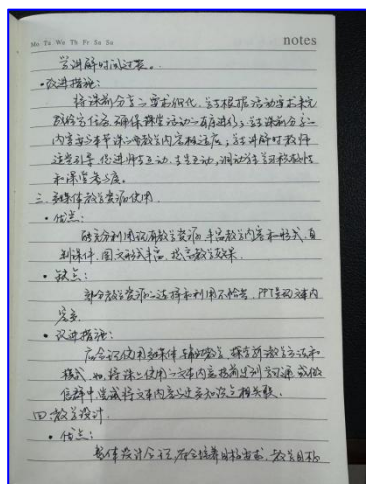 Mo Tu We Th Fr Sa Su notes
学讲解时间过长。
•改进措施:
将课前分享的要求细化,学生根据活动要求来完
成任务,确保课堂活动有序进行;学生课前分享的
内容与本节课的教学内容相适应;学生讲解时教师
适当引导,促进师生互动,生生互动,调动学生学习积极性
和课堂参与度。
三.多媒体教学资源使用
•优点:
能充分利用现有教学资源,丰富教学内容和形式,自
制课件,图文形式丰富,提高教学效果。
•缺点:
部分教学资源的选择和利用不恰当,PPT呈现文本内
容多。
•改进措施:
应合理使用多媒体辅助教学,探究新教学方法和
模式,如:将课上使用的文本内容提前发到学习通或微
信群中
四.教学设计
•优点:
整体设计合理,符合培养目标要求,教学目标